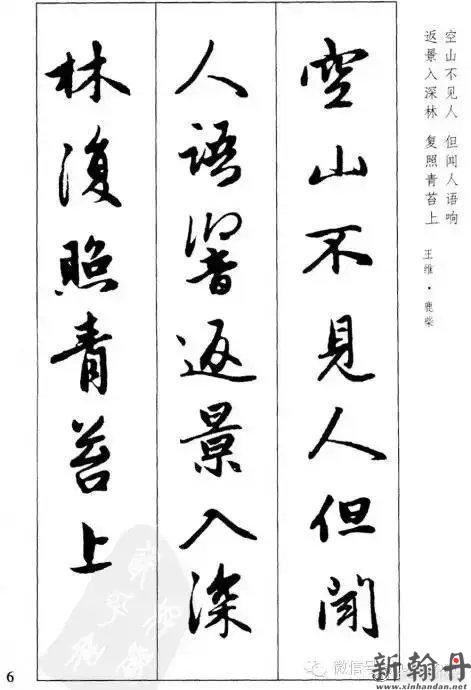 空山不見人但聞
人語響返景入深
林復照青苔上
空山不见人 但闻人语响
返景入深林 复照青苔上
王维·鹿柴
6
微信号
新翰丹
www.xinhandan.net